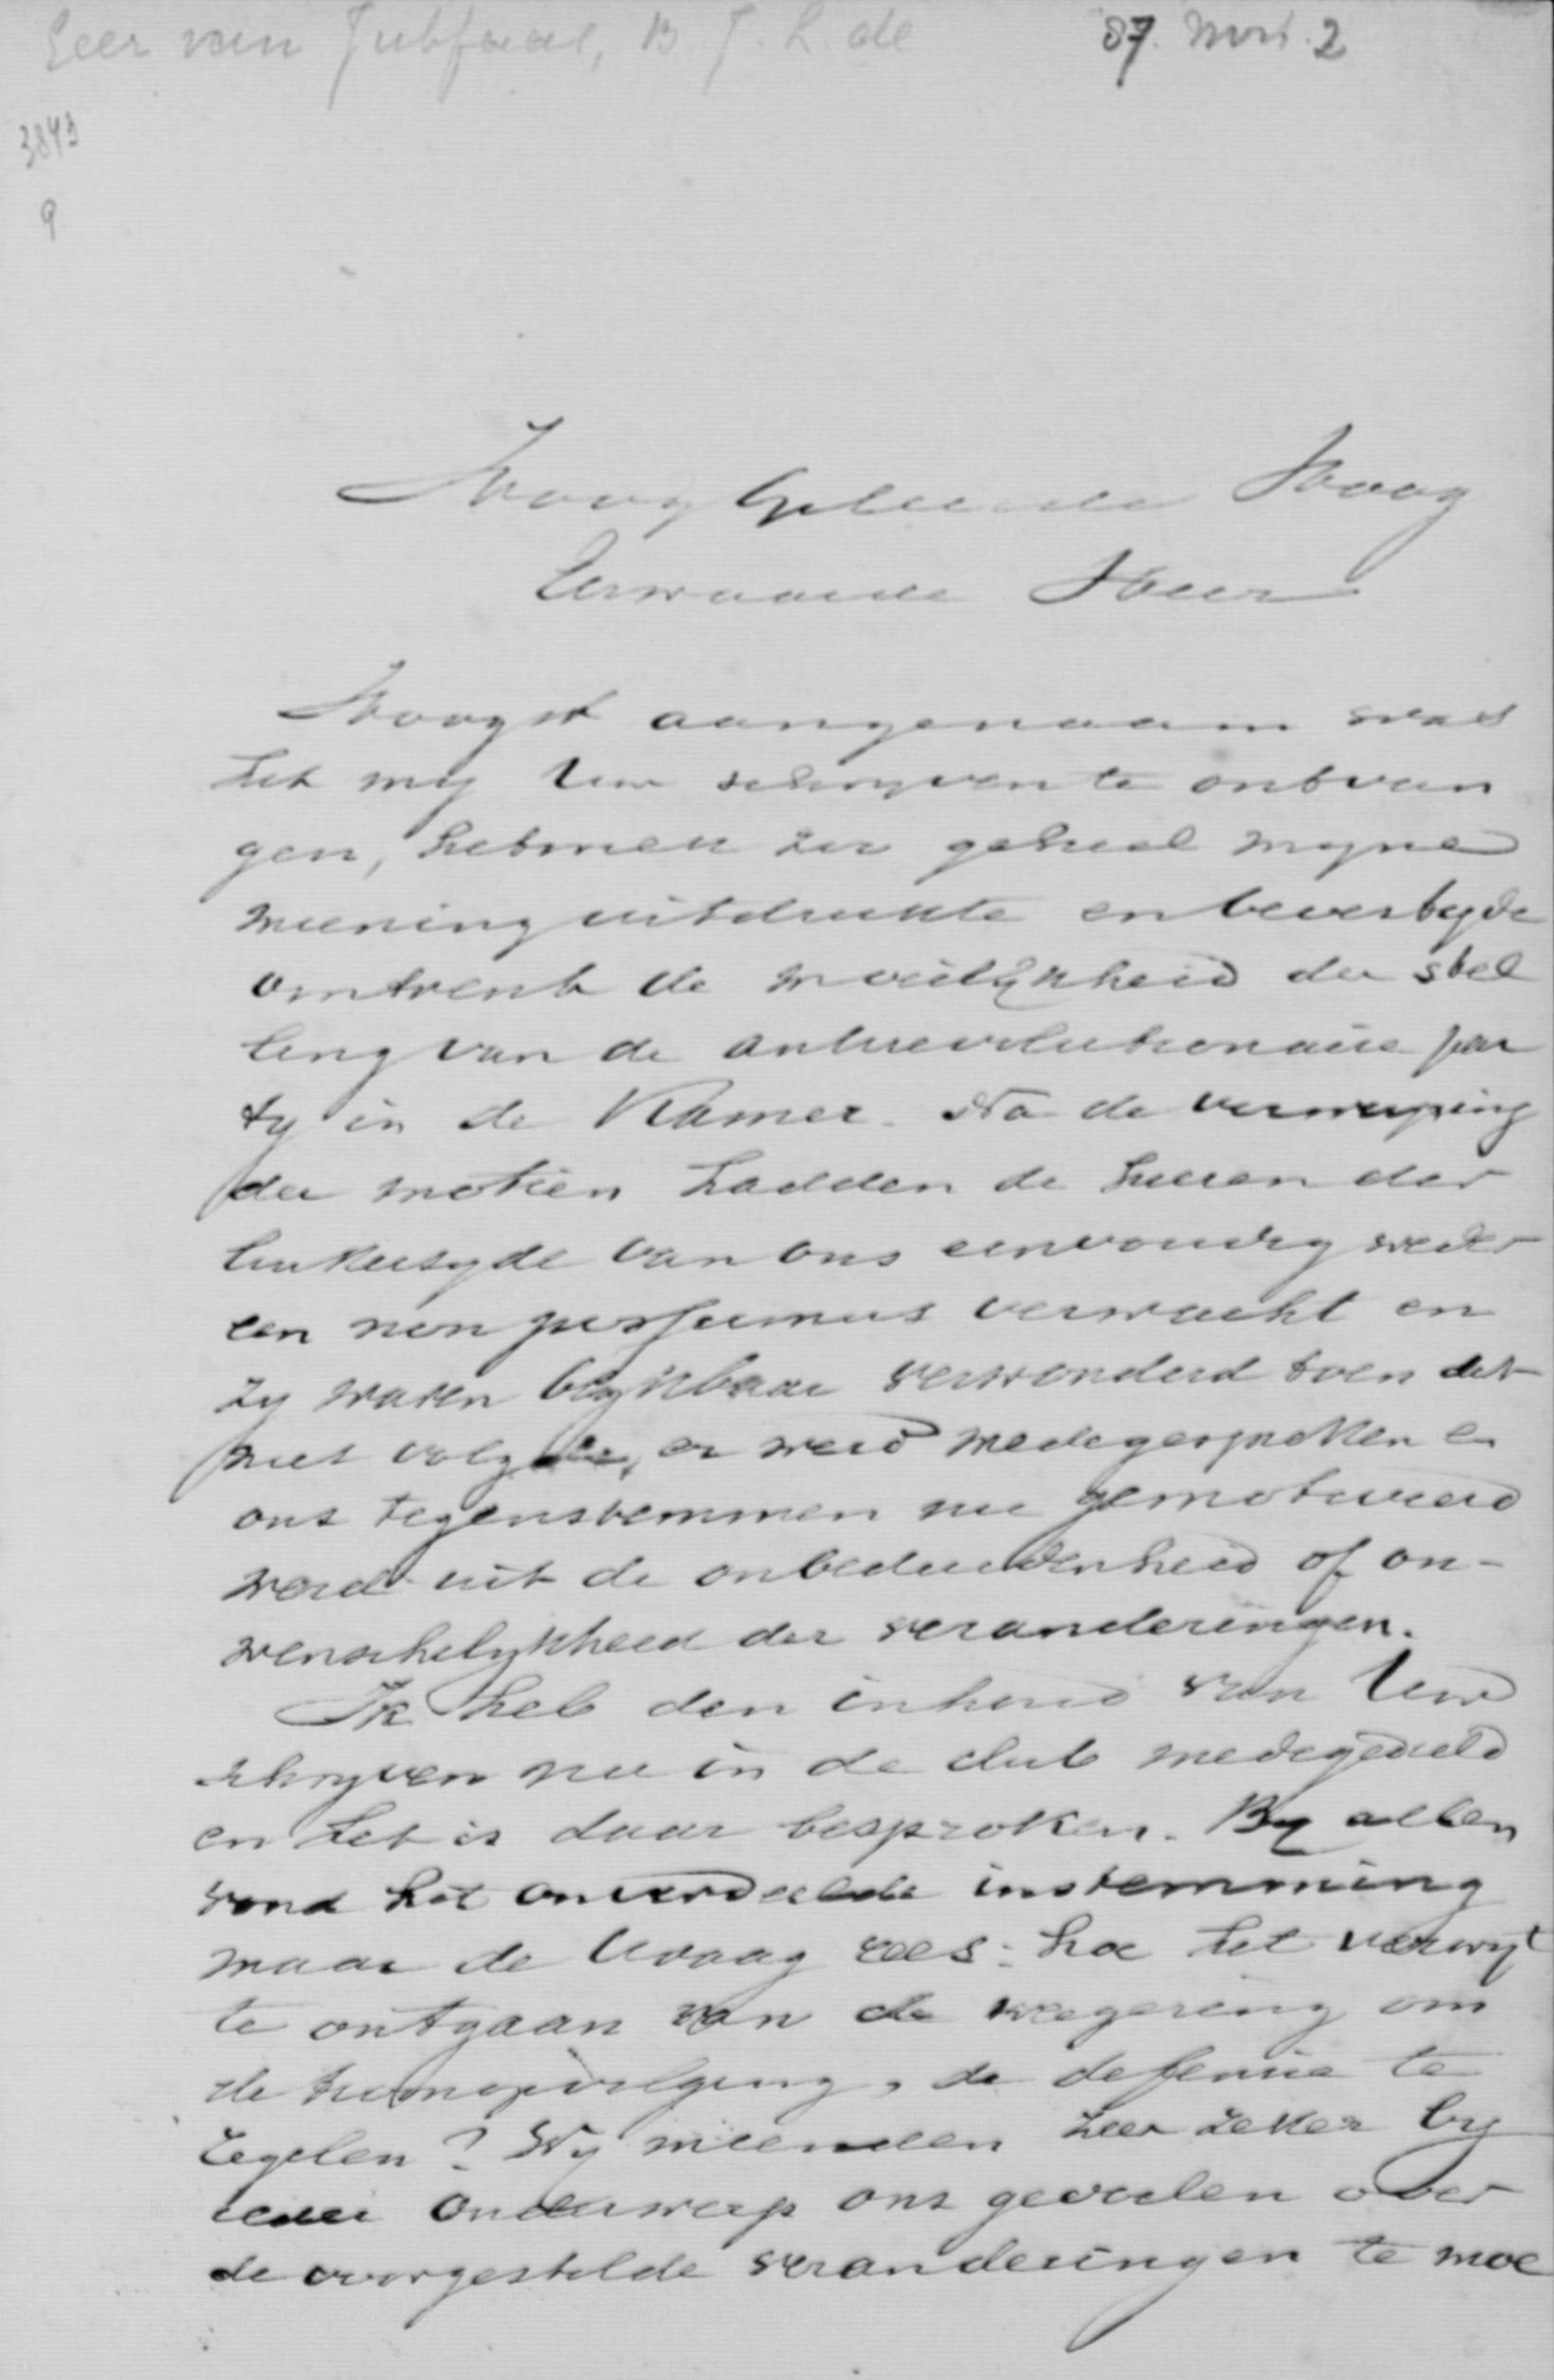 Geer van Jutfaas, B. J. L. de 87. Mrt. 2
3843
9
Hoog Geleerde Hoog
Eerwaarde Heer
Hoogst aangenaam was
het my Uw schryven te ontvan
gen, hetwelk zir geheel myne
meening uitdrukte en bevestigde
omtrent de moeilykheid der stel
ling van de antirevolutionaire par
ty in de Kamer. Na de verwerping
der motien hadden de heeren der
linkerzyde van ons eenvoudig weder
een non possumus verwacht en
zy waren blykbaar verwonderd toen dit
niet volgde, er werd medegesproken en
ons tegenstemmen nu gemotiveerd
werd uit de onbeduidenheid of on-
wenschelykheid der veranderingen.
Ik heb den inhoud van Uw
schryven nu in de club medegedeeld
en het is daar besproken. By allen
vond het onverdeelde instemming
maar de vraag rees: hoe het verwyt
te ontgaan van de weigering om
de troonopvolging, de defensie te
regelen? Wy meenden zeer zeker by
ieder onderwerp ons gevoelen over
de voorgestelde veranderingen te moe